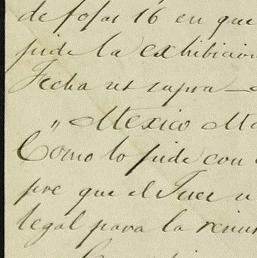 de fojas 16 en que
pide la exhibicion
Fecha ut supra
"Mexico Ma
Como lo pide con
pre que el Juez
legal para la